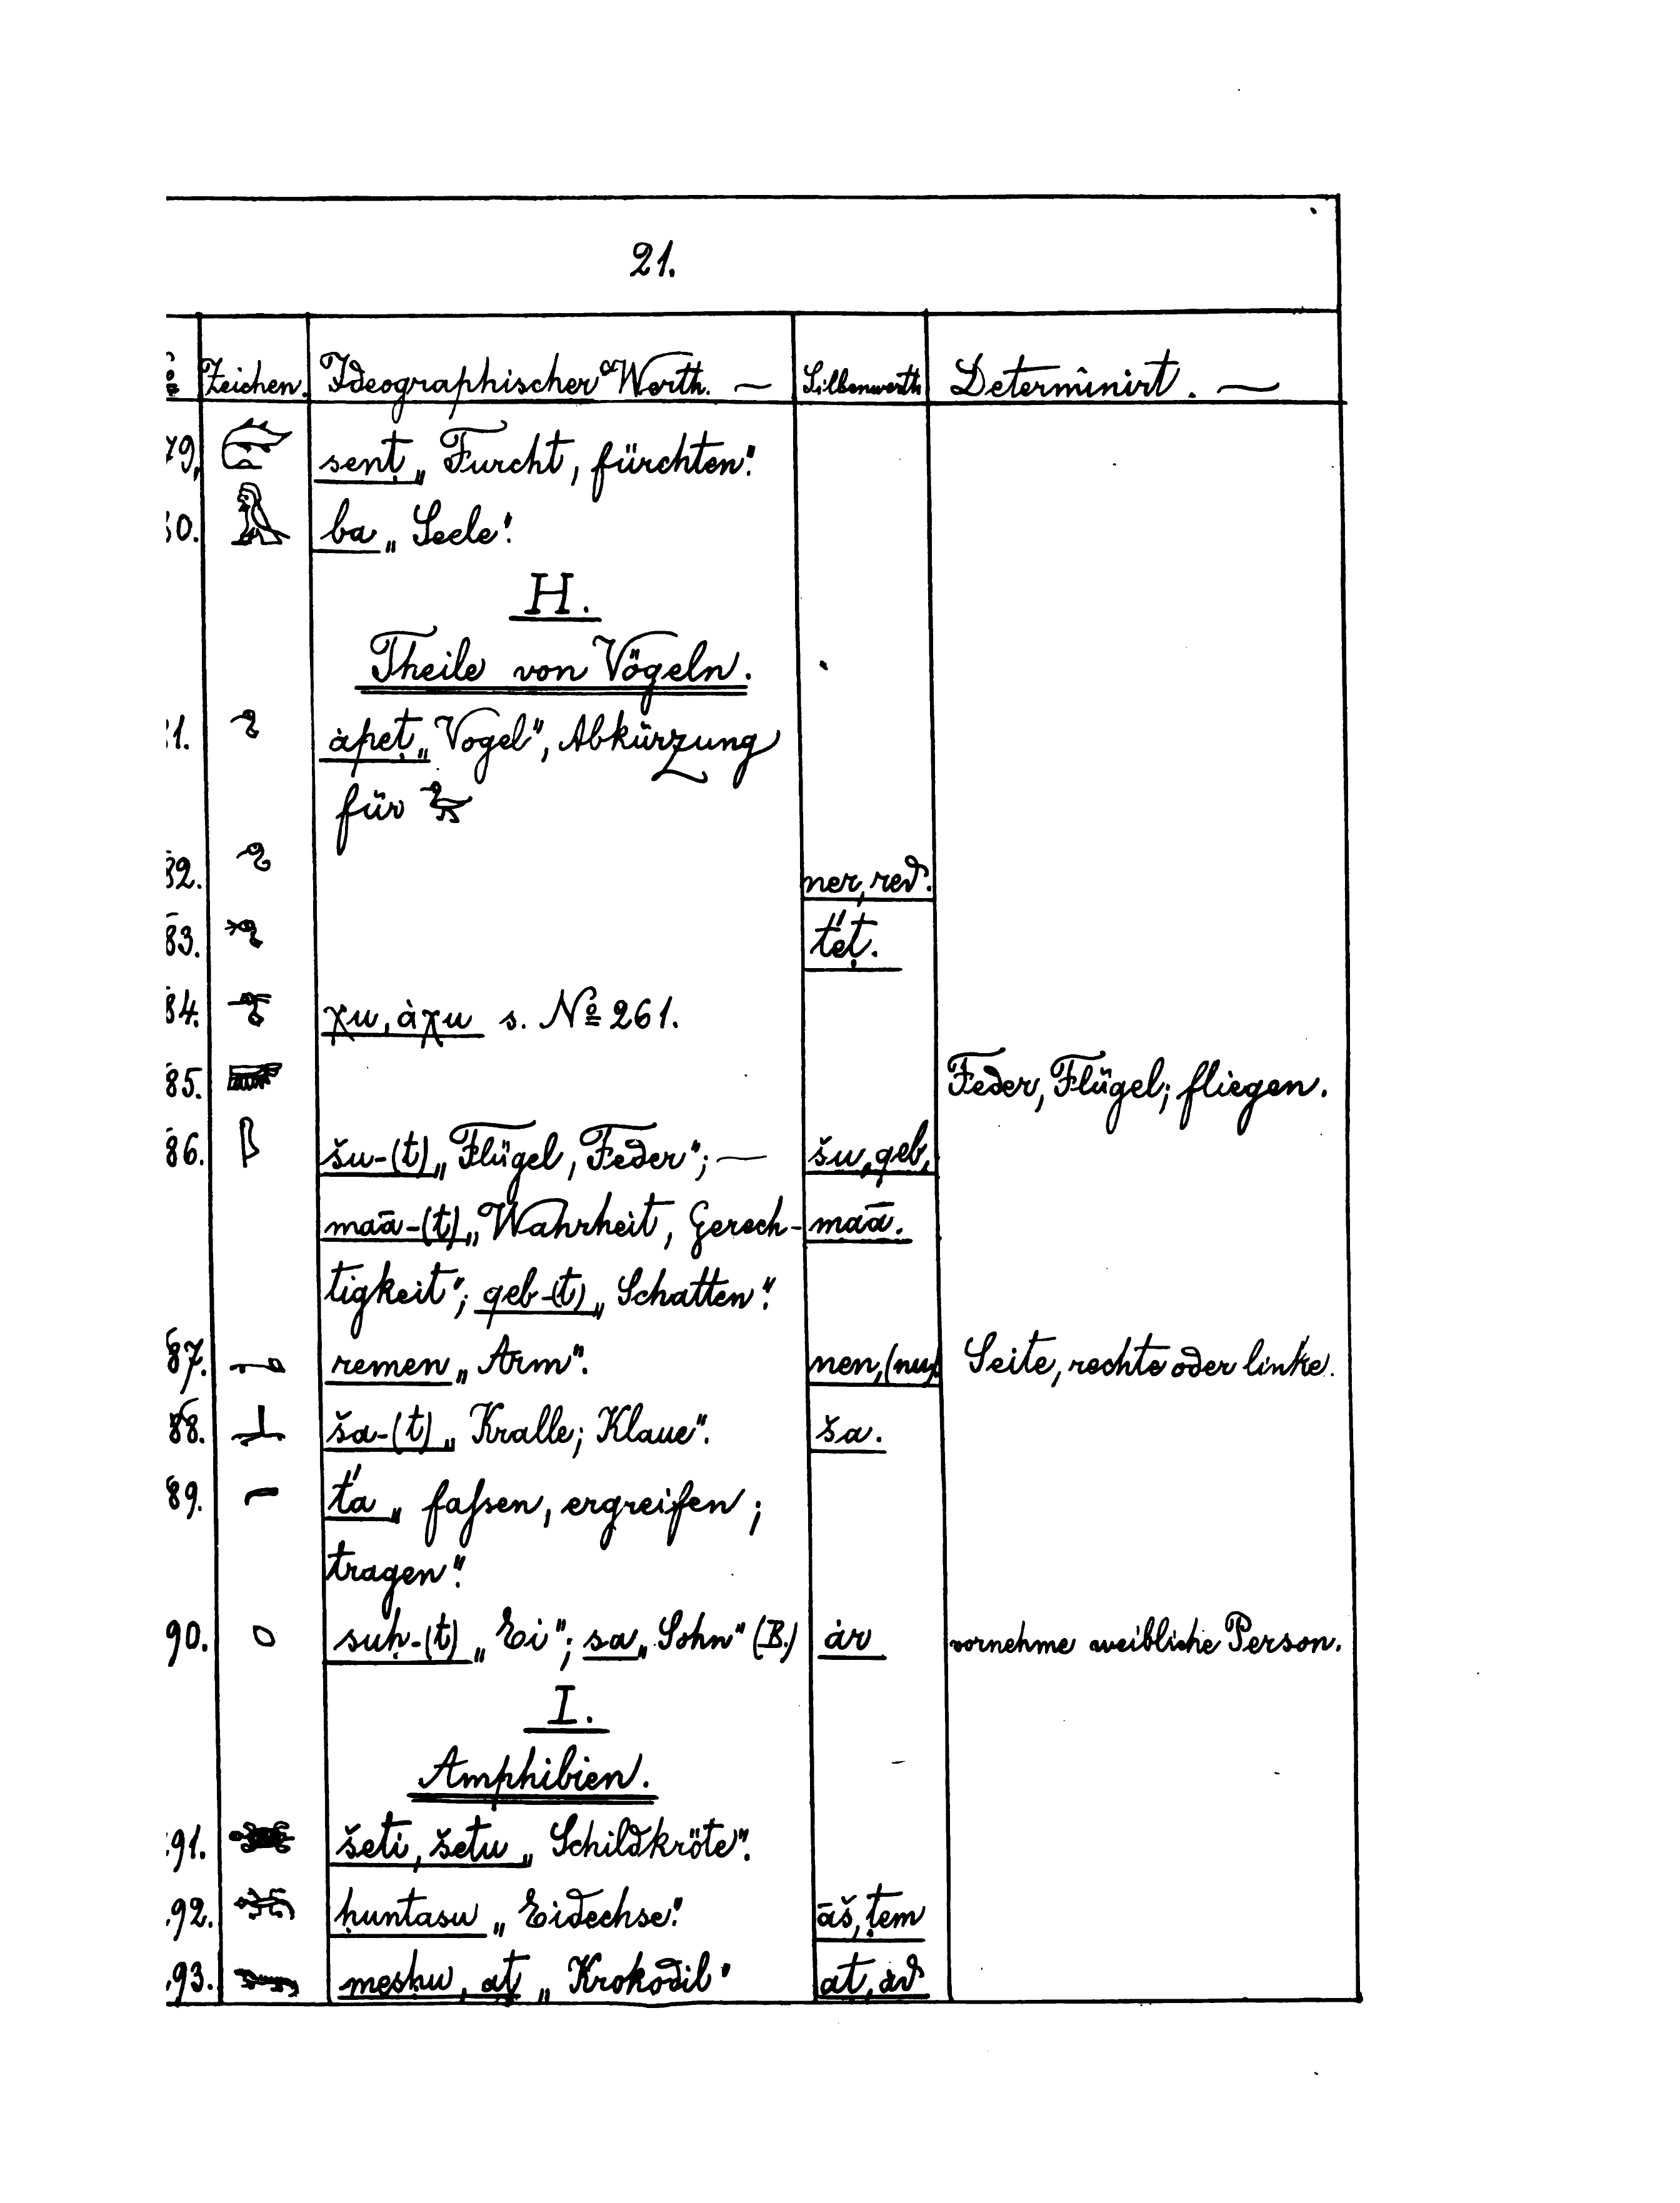 21.
Zeichen. Ideographischer Werth. — Silbenwerth Determinirt. —
79. senṭ „Furcht, fürchten".
80. ba „Seele".
H.
Theile von Vögeln.
81. àpeṭ „Vogel", Abkürzung
für
82. ner, red.
83. t'eṭ.
84. χu, àχu s. No 261.
85. Feder, Flügel; fliegen.
86. šu-(t) „Flügel, Feder"; — šu, qeb,
maā-(t) „Wahrheit, Gerech- maā.
tigkeit"; qeb-(t) „Schatten".
87. remen „Arm". nen, (nu) Seite, rechte oder linke.
88. ša-(t) „Kralle; Klaue". ša.
89. t'a „faſsen, ergreifen;
tragen".
90. suḥ-(t) „Ei"; sa „Sohn" (B.) àr vornehme weibliche Person.
I.
Amphibien.
91. šeti, šetu „Schildkröte".
92. ḥuntasu „Eidechse". āš, ṭem
93. mesḥu, aṭ „Krokodil" at, ad